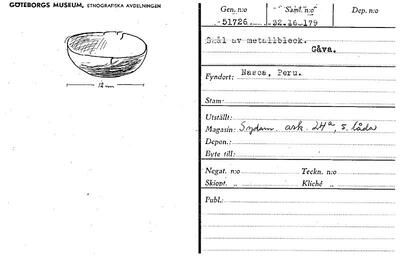 GÖTEBORGS MUSEUM, ETNOGRAFISKA AVDELNINGEN
12 mm
Gen. n:o Saml. n:o Dep. n:o
51726 32.16.179
Skål av metallbleck.
Gåva.
Fyndort: Nasca, Peru.
Stam:
Utställt:
Magasin: Sydam. ask. 24a, s. låda
Depon.:
Byte till:
Negat. n:o Teckn. n:o
Skiopt. „ Kliché „
Publ.: